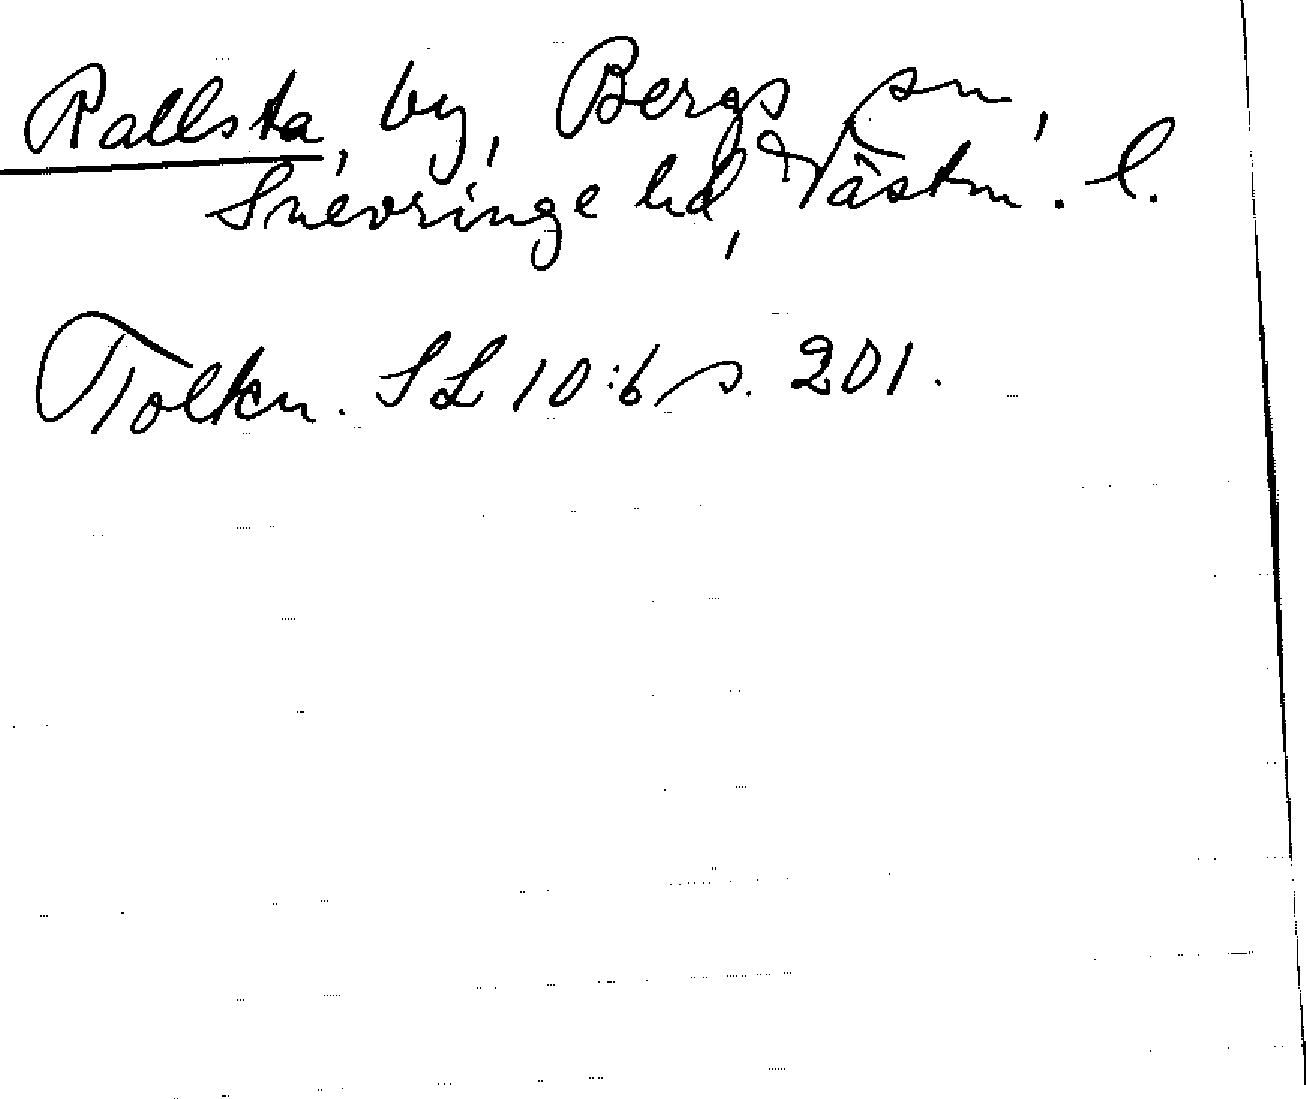 Rallsta, by, Bergs sn,
Snevringe hd, Västm. l.
Tolkn. SL 10:6 s. 201.